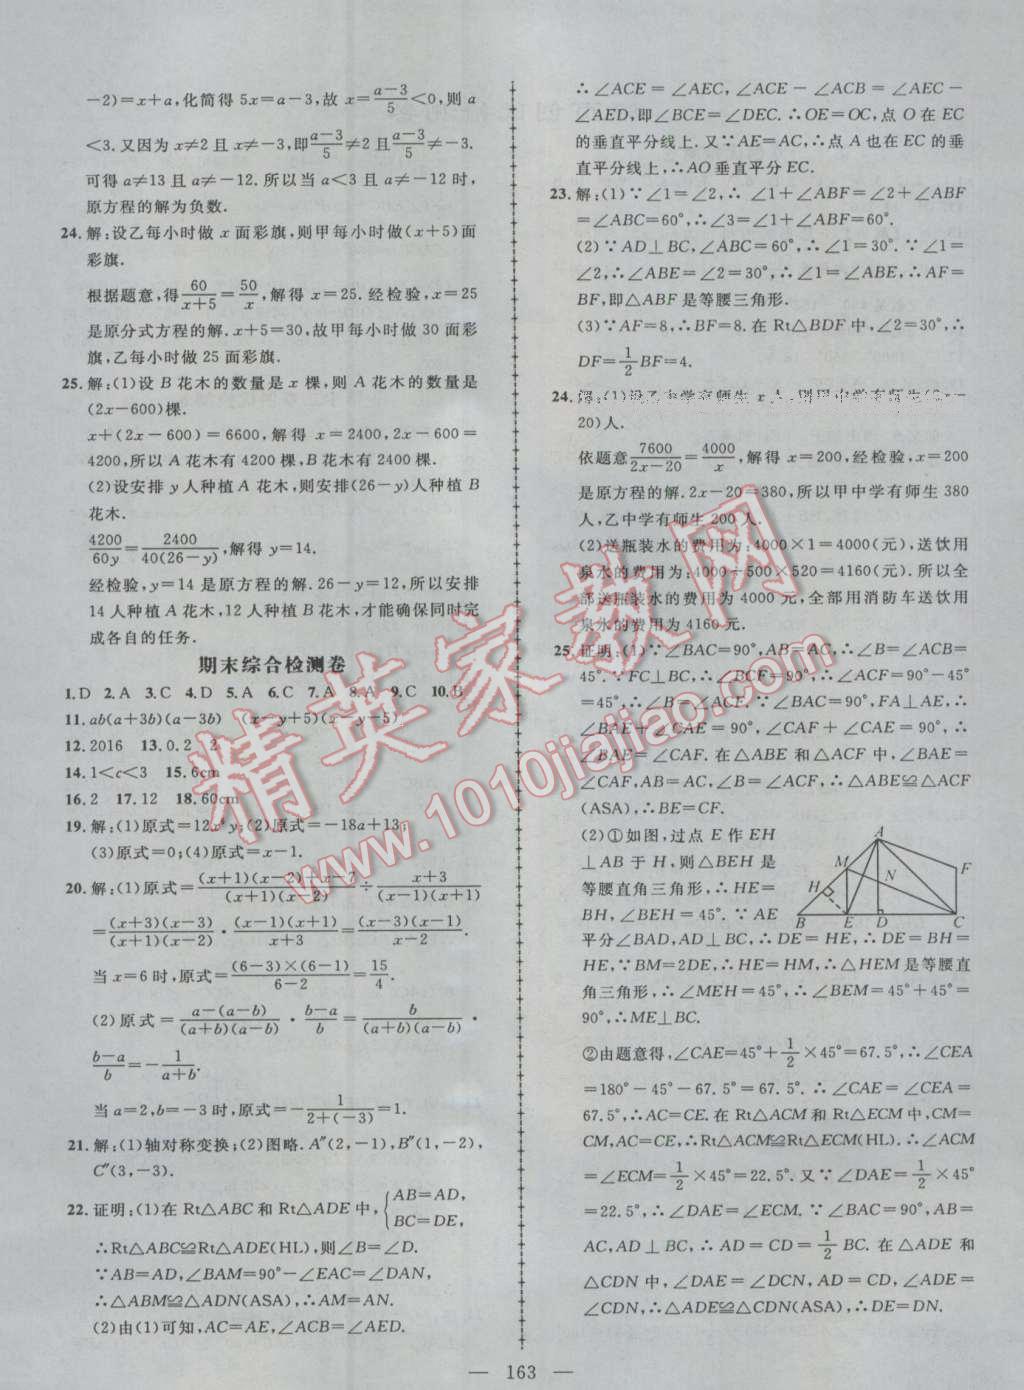 -2)=x+a,化简得5x=a-3,故x=\frac{a-3}{5}<0,则a
<3.又因为x≠2且x≠-3,即\frac{a-3}{5}≠2且\frac{a-3}{5}≠-3.
可得a≠13且a≠-12.所以当a<3且a≠-12时,
原方程的解为负数.
24.解:设乙每小时做x面彩旗,则甲每小时做(x+5)面
彩旗.
根据题意,得\frac{60}{x+5}=\frac{50}{x},解得x=25.经检验,x=25
是原分式方程的解.x+5=30,故甲每小时做30面彩
旗,乙每小时做25面彩旗.
25.解:(1)设B花木的数量是x棵,则A花木的数量是
(2x-600)棵.
x+(2x-600)=6600,解得x=2400,2x-600=
4200,所以A花木有4200棵,B花木有2400棵.
(2)设安排y人种植A花木,则安排(26-y)人种植B
花木.
\frac{4200}{60y}=\frac{2400}{40(26-y)},解得y=14.
经检验,y=14是原方程的解.26-y=12,所以安排
14人种植A花木,12人种植B花木,才能确保同时完
成各自的任务.
期末综合检测卷
1.D 2.A 3.C 4.D 5.A 6.C 7.A 8.A 9.C 10.B
11.ab(a+3b)(a-3b) (x-y+5)(x-y-5)
12.2016 13.0,2 2
14.1<c<3 15.6cm
16.2 17.12 18.60cm
19.解:(1)原式=12x y;(2)原式=-18a+13;
(3)原式=0;(4)原式=x-1.
20.解:(1)原式=\frac{(x+1)(x-2)+x-7}{(x+1)(x-2)}÷\frac{x+3}{(x-1)(x+1)}
=\frac{(x+3)(x-3)}{(x+1)(x-2)}·\frac{(x-1)(x+1)}{x+3}=\frac{(x-3)(x-1)}{x-2}.
当x=6时,原式=\frac{(6-3)×(6-1)}{6-2}=\frac{15}{4}.
(2)原式=\frac{a-(a-b)}{(a+b)(a-b)}·\frac{b-a}{b}=\frac{b}{(a+b)(a-b)}·
\frac{b-a}{b}=-\frac{1}{a+b}.
当a=2,b=-3时,原式=-\frac{1}{2+(-3)}=1.
21.解:(1)轴对称变换;(2)图略.A″(2,-1),B″(1,-2),
C″(3,-3).
22.证明:(1)在Rt△ABC和Rt△ADE中,{AB=AD, BC=DE,
∴Rt△ABC≌Rt△ADE(HL),则∠B=∠D.
∵AB=AD,∠BAM=90°-∠EAC=∠DAN,
∴△ABM≌△ADN(ASA),∴AM=AN.
(2)由(1)可知,AC=AE,∠ACB=∠AED.
∴∠ACE=∠AEC,∠ACE-∠ACB=∠AEC-
∠AED,即∠BCE=∠DEC.∴OE=OC,点O在EC
的垂直平分线上.又∵AE=AC,∴点A也在EC的垂
直平分线上,∴AO垂直平分EC.
23.解:(1)∵∠1=∠2,∴∠1+∠ABF=∠2+∠ABF
=∠ABC=60°,∴∠3=∠1+∠ABF=60°.
(2)∵AD⊥BC,∠ABC=60°,∴∠1=30°.∵∠1=
∠2,∴∠ABF=30°,∴∠1=∠ABF,∴AF=
BF,即△ABF是等腰三角形.
(3)∵AF=8,∴BF=8.在Rt△BDF中,∠2=30°,∴
DF=\frac{1}{2}BF=4.
24.解:(1)设乙中学有师生x人,则甲中学有师生(2x-
20)人.
依题意\frac{7600}{2x-20}=\frac{4000}{x},解得x=200,经检验,x=200
是原方程的解.2x-20=380,所以甲中学有师生380
人,乙中学有师生200人.
(2)送瓶装水的费用为:4000×1=4000(元),送饮用
泉水的费用为:4000-500×520=4160(元).所以全
部送瓶装水的费用为4000元,全部用消防车送饮用
泉水的费用为4160元.
25.证明:(1)∵∠BAC=90°,AB=AC,∴∠B=∠ACB=
45°.∵FC⊥BC,∴∠BCF=90°,∴∠ACF=90°-
45°=45°,∴∠B=∠ACF.∵∠BAC=90°,FA⊥AE,∴
∠BAE+∠CAE=90°,∠CAF+∠CAE=90°,∴
∠BAE=∠CAF.在△ABE和△ACF中,∠BAE=
∠CAF,AB=AC,∠B=∠ACF,∴△ABE≌△ACF
(ASA),∴BE=CF.
(2)①如图,过点E作EH
⊥AB于H,则△BEH是
等腰直角三角形,∴HE=
BH,∠BEH=45°.∵AE
平分∠BAD,AD⊥BC,∴DE=HE,∴DE=BH=
HE,∵BM=2DE,∴HE=HM,∴△HEM是等腰直
角三角形,∴∠MEH=45°,∴∠BEM=45°+45°=
90°,∴ME⊥BC.
②由题意得,∠CAE=45°+\frac{1}{2}×45°=67.5°,∴∠CEA
=180°-45°-67.5°=67.5°.∴∠CAE=∠CEA=
67.5°,∴AC=CE.在Rt△ACM和Rt△ECM中,CM=
CM,AC=CE,∴Rt△ACM≌Rt△ECM(HL).∴∠ACM
=∠ECM=\frac{1}{2}×45°=22.5°.又∵∠DAE=\frac{1}{2}×45°
=22.5°,∴∠DAE=∠ECM.∵∠BAC=90°,AB=
AC,AD⊥BC,∴AD=CD=\frac{1}{2}BC.在△ADE和
△CDN中,∠DAE=∠DCN,AD=CD,∠ADE=
∠CDN,∴△ADE≌△CDN(ASA),∴DE=DN.
A
M
F
H
N
B
E
D
C
— 163 —
精英家教网
www.1010jiajiao.com